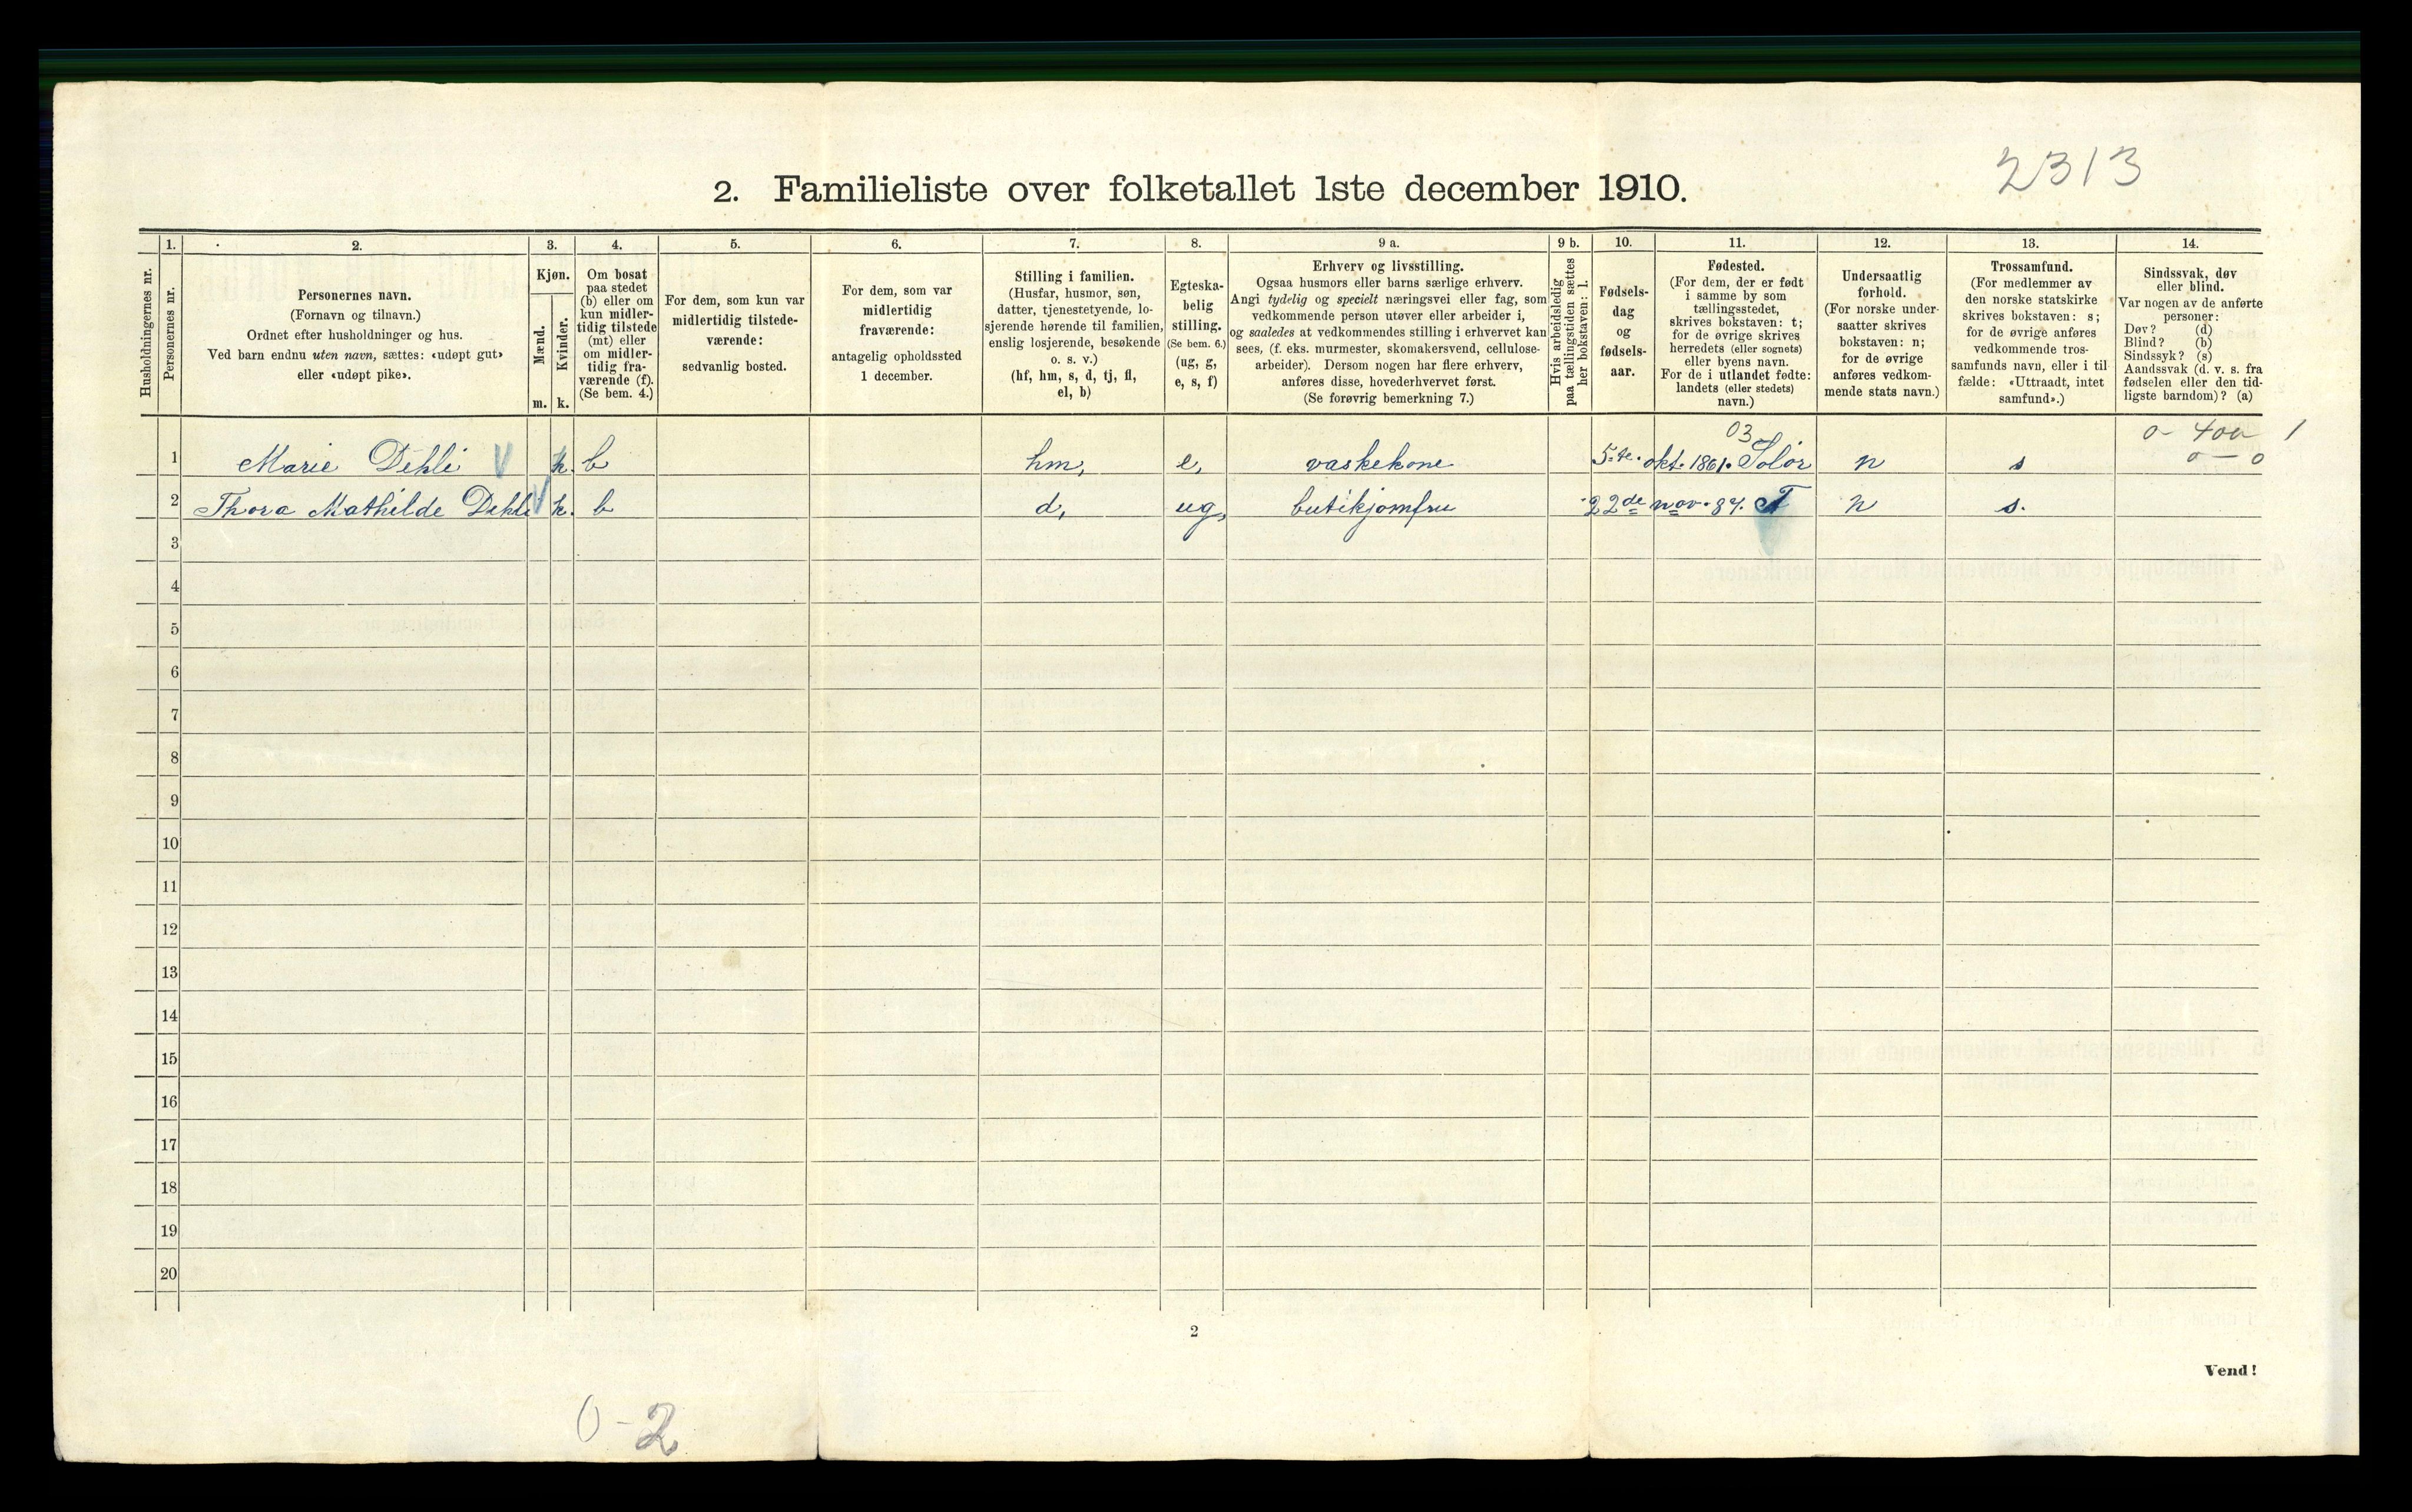 2313
2. Familieliste over folketallet 1ste december 1910.
1. 2. 3. 4. 5. 6. 7. 8. 9 a. 9 b. 10. 11. 12. 13. 14.
Husholdningernes nr.
Personernes nr.
Personernes navn.
(Fornavn og tilnavn.)
Ordnet efter husholdninger og hus.
Ved barn endnu uten navn, sættes: «udøpt gut»
eller «udøpt pike».
Kjøn.
Mænd.
m.
Kvinder.
k.
Om bosat
paa stedet
(b) eller om
kun midler-
tidig tilstede
(mt) eller
om midler-
tidig fra-
værende (f).
(Se bem. 4.)
For dem, som kun var
midlertidig tilstede-
værende:
sedvanlig bosted.
For dem, som var
midlertidig
fraværende:
antagelig opholdssted
1 december.
Stilling i familien.
(Husfar, husmor, søn,
datter, tjenestetyende, lo-
sjerende hørende til familien,
enslig losjerende, besøkende
o. s. v.)
(hf, hm, s, d, tj, fl,
el, b)
Egteska-
belig
stilling.
(Se bem. 6.)
(ug, g,
e, s, f)
Erhverv og livsstilling.
Ogsaa husmors eller barns særlige erhverv.
Angi tydelig og specielt næringsvei eller fag, som
vedkommende person utøver eller arbeider i,
og saaledes at vedkommendes stilling i erhvervet kan
sees, (f. eks. murmester, skomakersvend, cellulose-
arbeider). Dersom nogen har flere erhverv,
anføres disse, hovederhvervet først.
(Se forøvrig bemerkning 7.)
Hvis arbeidsledig
paa tællingstiden sættes
her bokstaven: l.
Fødsels-
dag
og
fødsels-
aar.
Fødested.
(For dem, der er født
i samme by som
tællingsstedet,
skrives bokstaven: t;
for de øvrige skrives
herredets (eller sognets)
eller byens navn.
For de i utlandet fødte:
landets (eller stedets)
navn.)
Undersaatlig
forhold.
(For norske under-
saatter skrives
bokstaven: n;
for de øvrige
anføres vedkom-
mende stats navn.)
Trossamfund.
(For medlemmer av
den norske statskirke
skrives bokstaven: s;
for de øvrige anføres
vedkommende tros-
samfunds navn, eller i til
fælde: «Uttraadt, intet
samfund».)
Sindssvak, døv
eller blind.
Var nogen av de anførte
personer:
Døv? (d)
Blind? (b)
Sindssyk? (s)
Aandssvak (d. v. s. fra
fødselen eller den tid-
ligste barndom)? (a)
03 0 - 400 1
1 Marie Dehli k. b hm, e, vaskekone 5-te. okt. 1861. Solør n s 0 — 0
2 Thora Mathilde Dehli k. b d, ug, butikjomfru 22de nov. 87. T n s.
3
4
5
6
7
8
9
10
11
12
13
14
15
16
17
18
19
20
2
Vend!
0-2